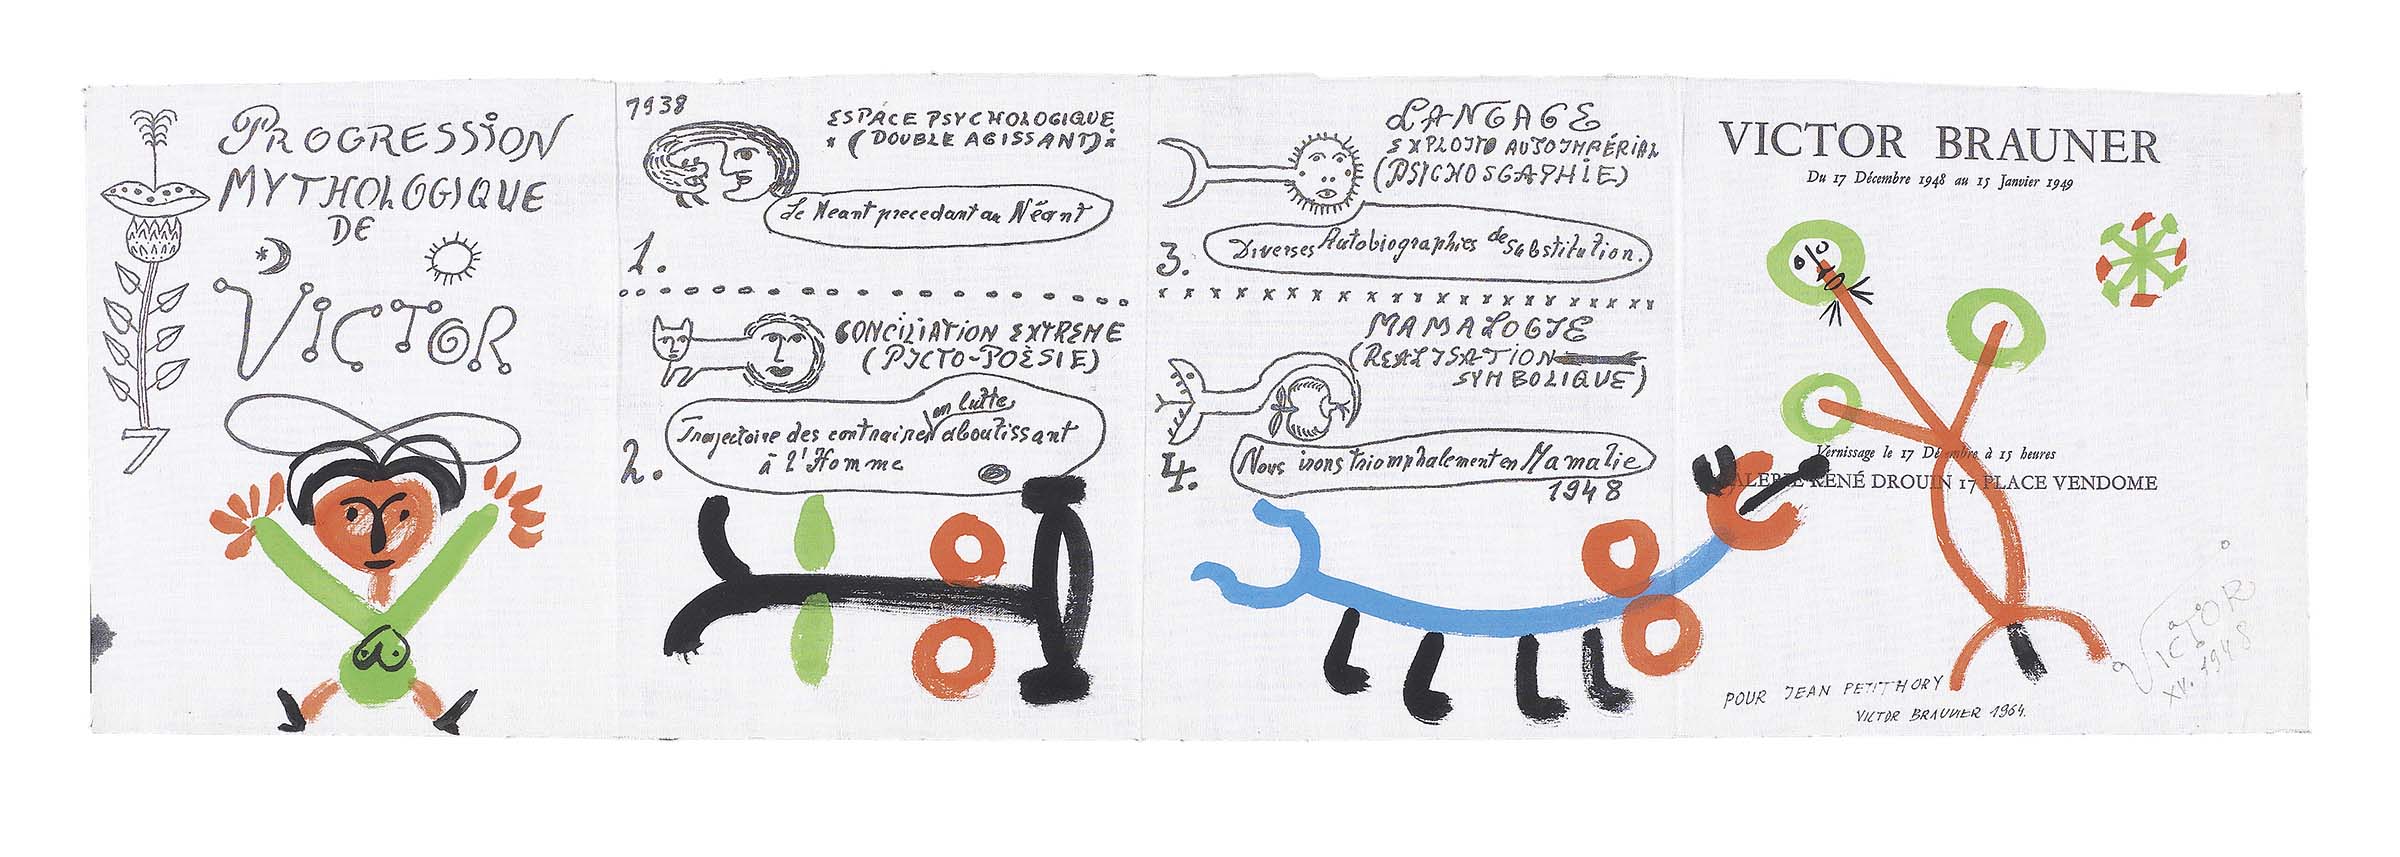 PROGRESSION
MYTHOLOGIQUE
DE
VICTOR
1938
ESPACE PSYCHOLOGIQUE
(DOUBLE AGISSANT)
Le Neant precedant au Néant
1.
CONCILIATION EXTREME
(PICTO-POÈSIE)
Trajectoire des contraires en lutte aboutissant
à l'Homme
2.
LANGAGE
EXPLOITO AUTOIMPÉRIAL
(PSICHOSGAPHIE)
Diverses Autobiographies de Substitution.
3.
MAMALOGIE
(REALISATION
SYMBOLIQUE)
Nous irons triomphalement en Mamalie
4.
1948
VICTOR BRAUNER
Du 17 Décembre 1948 au 15 Janvier 1949
Vernissage le 17 Décembre à 15 heures
GALERIE RENÉ DROUIN 17 PLACE VENDOME
POUR JEAN PETITHORY
VICTOR BRAUNER 1964.
VICTOR
XV. 1948